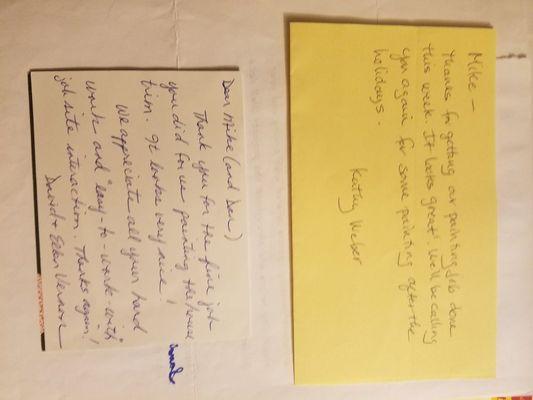 Mike —
Thanks for getting our painting job done
this week. It looks great! We'll be calling
you again for some painting after the
holidays.
Kathy Weber
Dear Mike (and Dan)
Thank you for the fine job
you did for us painting the house
trim. It looks very nice!
We appreciate all your hard
work and "easy-to-work with"
job site interaction. Thanks again!
David + Ellen